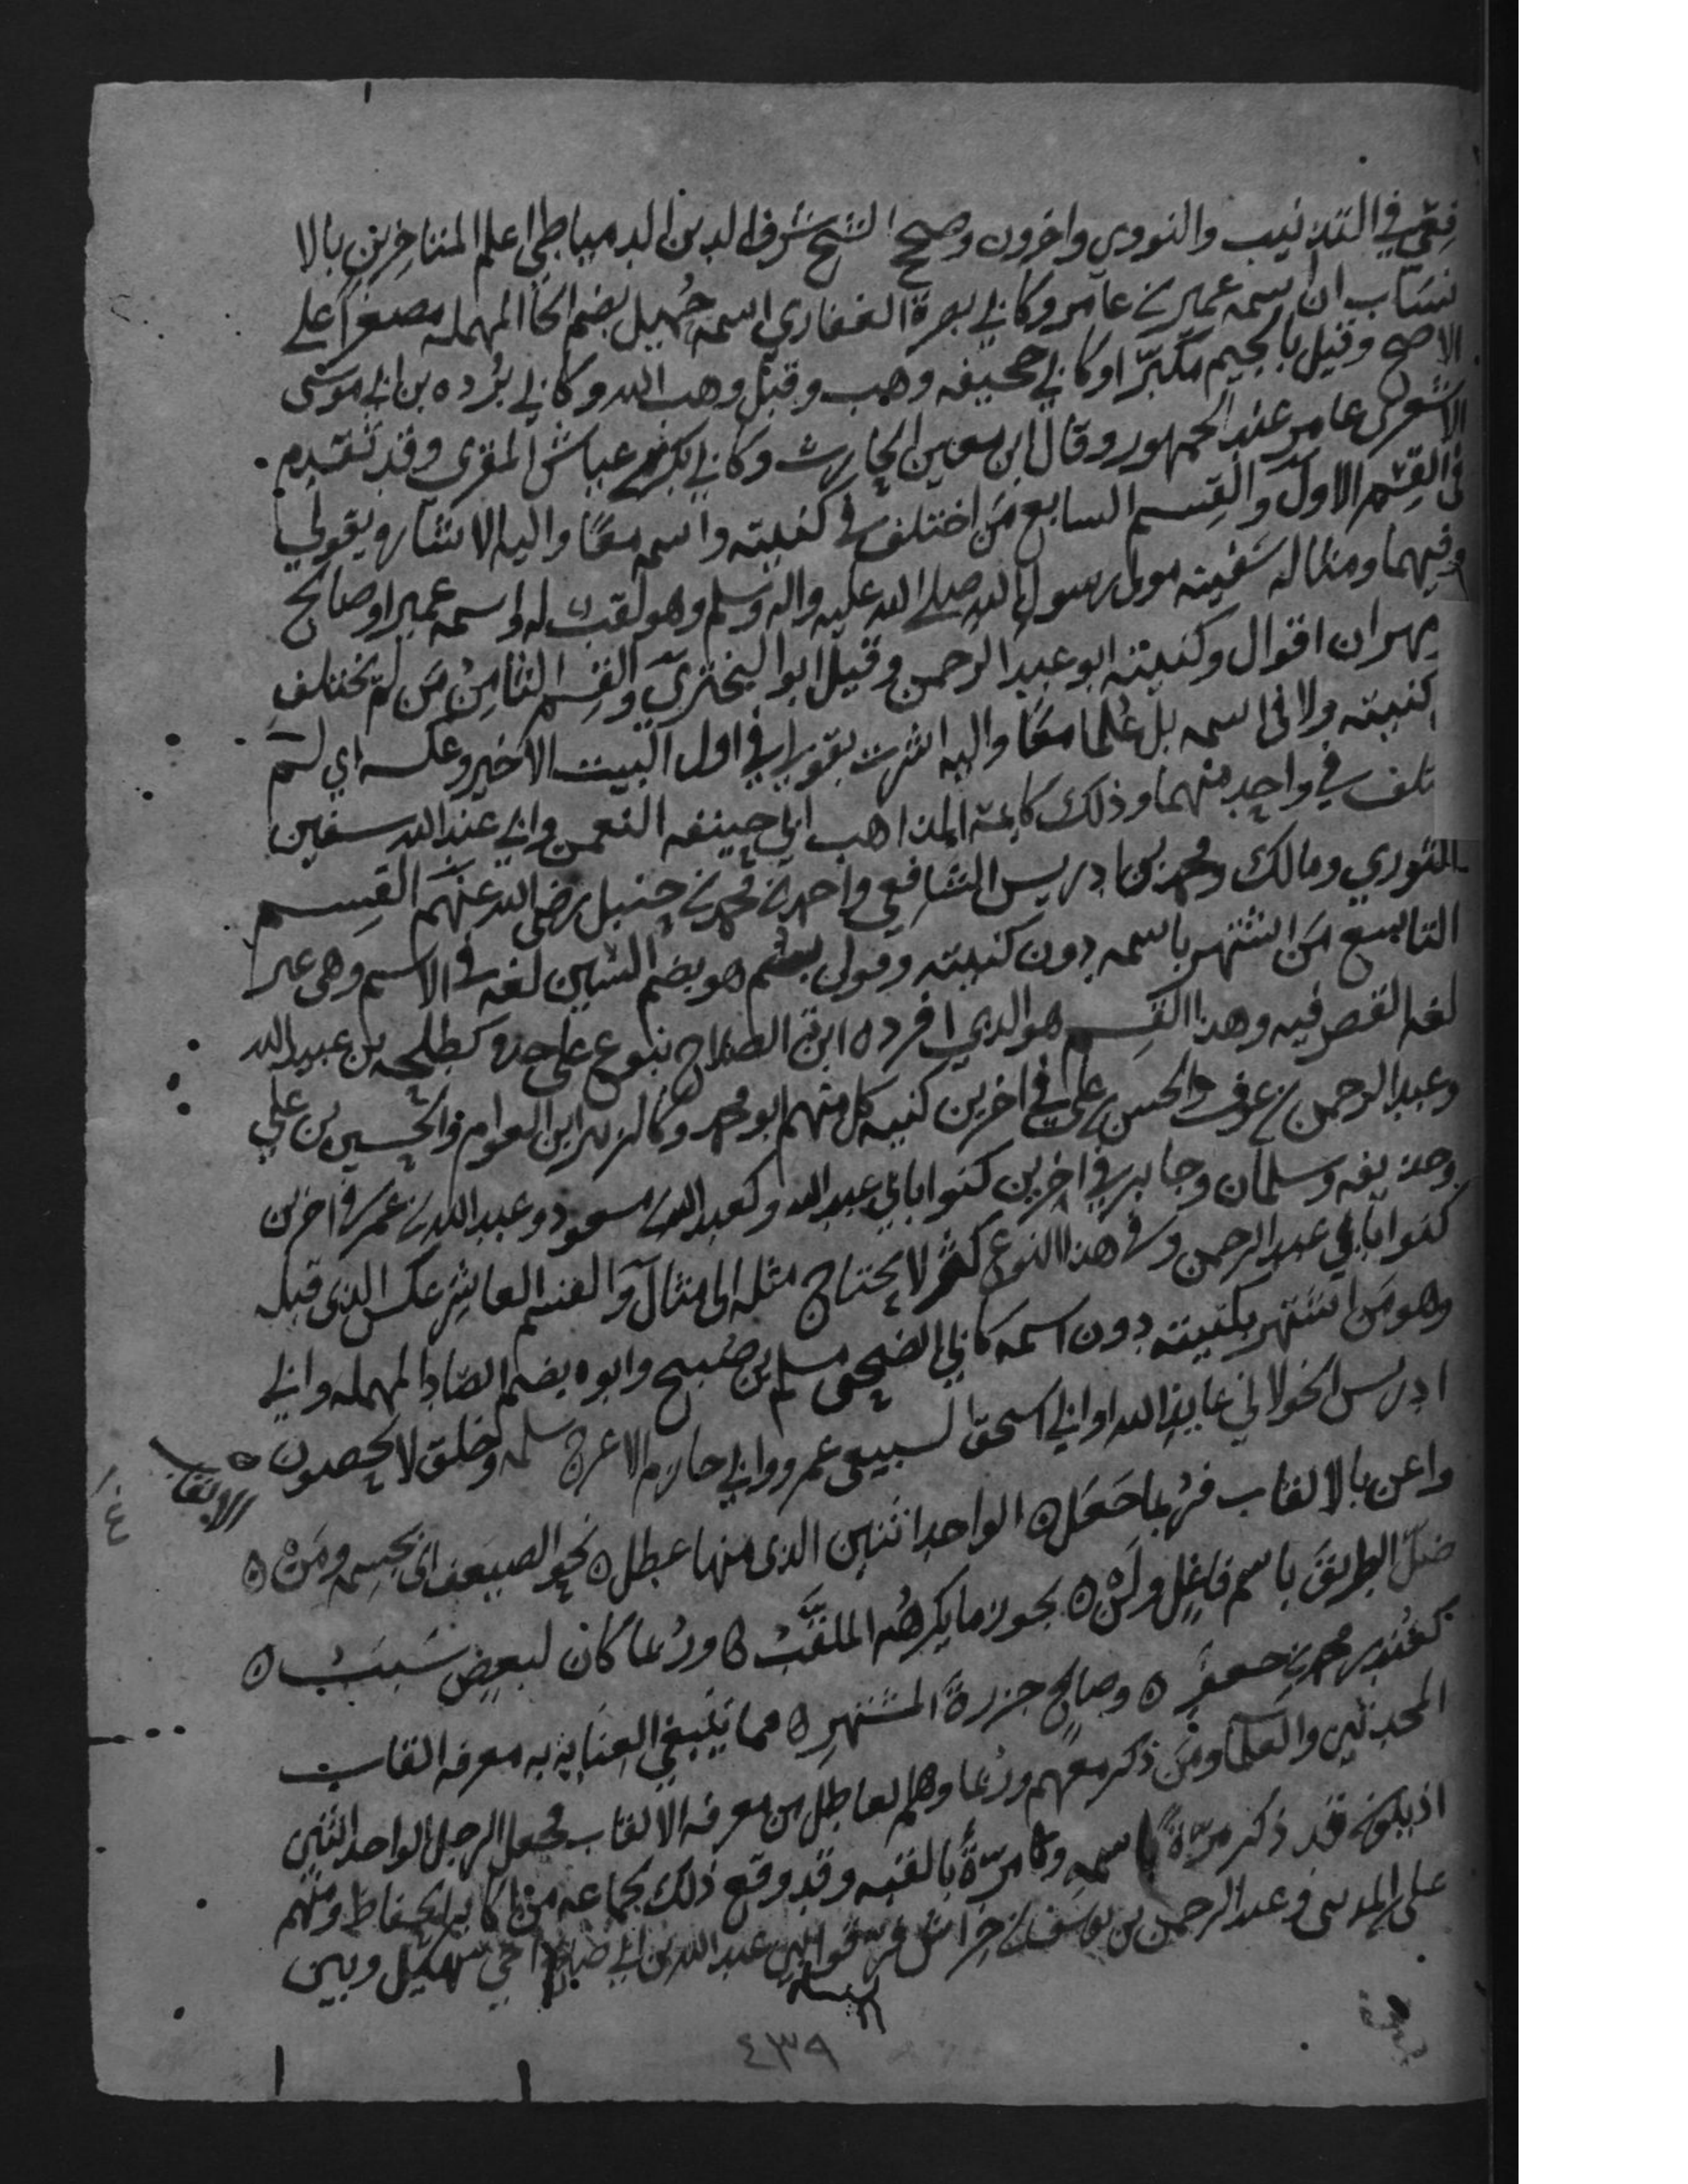 فعي في التذنيب والنووي واخرون وصحح الشيخ شرف الدين الدمياطي اعلم المتاخرين بالا
نساب ان اسمه عمير بن عامر وكابي بصرة الغفاري اسمه حُميل بضم الحا المهمله مصغرا على
الاصح وقيل بالجيم مكبّرا وكابي جحيفه وهب وقيل وهب الله وكابي بُرده بن ابي موسى
الاشعري عامر عند الجمهور وقال ابن معين الحارث وكابي بكر بن عياش المقرى وقد تقدم
في القسْم الاول والقِسم السابع مَن اختلف في كنيته واسمه معًا واليه الاشاره بقولي
وفيهما ومثاله سَفينه مولى رسول الله صلى الله عليه واله وسلم وهو لقب له واسمه عمير او صالح
مهران اقوال وكنيته ابو عبد الرحمن وقيل ابو البختري والقسم الثامِنُ مَن لم يختلف
كنيته ولا في اسمه بل عُلما معًا واليه اشرت بقولي في اول البيت الاخير وعكسه اي لم
تلف في واحد منهما وذلك كايمة المذاهب ابي حنيفه النعمن وابي عبد الله سفين
الثوري ومالك ومحمد بن ادريس الشافعي واحمد بن محمد بن حنبل رضى الله عنهم القسم
التاسع مَن اشتهر باسمه دون كنيته وقولي بسُم هو بضم السين لغه في الاسم وهى غير
لغه القصر فيه وهذا القسم هو الذي افرده ابن الصلاح بنوع على حدة كطلحه بن عبيد الله
وعبد الرحمن بن عوف والحسن بن علي في اخرين كنيه كل منهم ابو محمد وكالزبير ابن العوام والحسين بن علي
وحذيفه وسلمان وجابر في اخرين كنوا بابي عبد الله وكعبد الله بن مسعود وعبد الله بن عمر في اخرين
كنوا بابي عبد الرحمن وفي هذا النوع كثر لا يحتاج مثله الى مثال والقسم العاشر عكس الذى قبله
وهو مَن اشتهر بكنيته دون اسمه كابي الضحى مسلم بن صُبيح وابوه بضم الصّاد المهمله وابي
ادريس الخولاني عايذ الله وابي اسحق السبيعي عمرو وابي حازم الاعرج سلمه وخلق لا يحصون
الالقاب
واعن بالالقاب فرُبما جَعَل ه الواحد اثنين الذى منها عطل ه نحو الضعيف اي بجسمه ومَن ه
ضل الطريق باسم فاعِل ولَن ه يجوز ما يكرههُ الملقَّبُ ه ورُبما كان لبعض سَبَبُ ه
كغُندر محمد بن جعفر ه وصالح جزرة المشتهر ه مما ينبغي العنايه به معرفه القاب
المحدثين والعلما ومَن ذكر معهم وربما وهم العاطل من معرفه الالقاب فجعل الرجل الواحد اثنين
اذ يكون قد ذكر مرّة باسمه ومرّة بالقبه وقد وقع ذلك لجماعه من اكابر الحفاظ ومنهم
علي المديني وعبد الرحمن بن يوسف بن خراش فرّقوا بين عبد الله بن ابي صالح اخي سُهيل وبين
٤٣٩